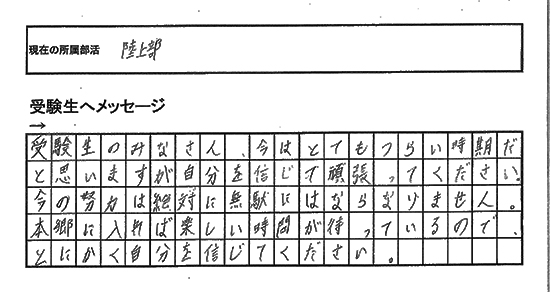 現在の所属部活 陸上部
受験生へメッセージ
→
受験生のみなさん、今はとてもつらい時期だ
と思いますが自分を信じて頑張ってください。
今の努力は絶対に無駄にはならなりません。
本郷に入れば楽しい時間が待っているので、
とにかく自分を信じてください。